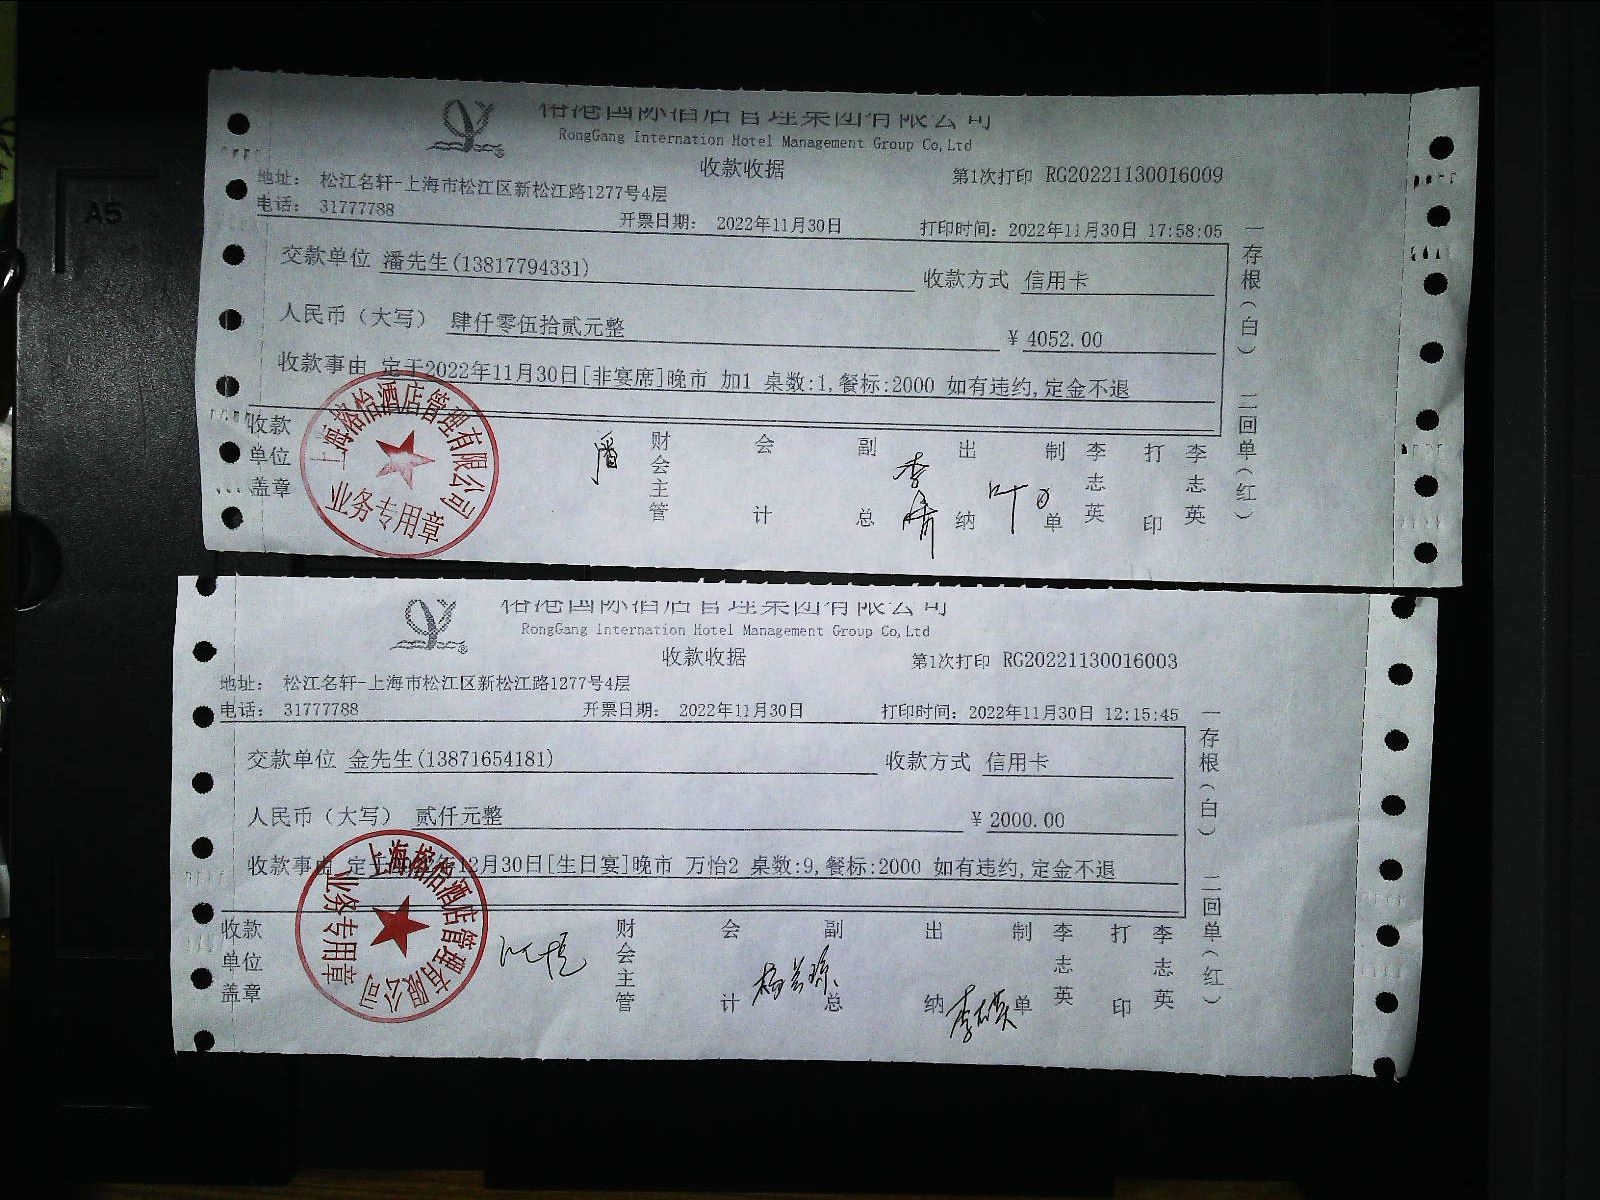 A5
榕港国际酒店管理集团有限公司
RongGang Internation Hotel Management Group Co,Ltd
收款收据
第1次打印 RG20221130016009
地址： 松江名轩-上海市松江区新松江路1277号4层
电话： 31777788
开票日期： 2022年11月30日
打印时间：2022年11月30日 17:58:05
交款单位 潘先生(13817794331)
收款方式 信用卡
人民币（大写） 肆仟零伍拾贰元整
￥4052.00
收款事由 定于2022年11月30日[非宴席]晚市 加1 桌数:1,餐标:2000 如有违约,定金不退
一存根（白） 二回单（红）
收款单位盖章
上海榕怡酒店管理有限公司
业务专用章
潘
财会主管 会计 副总 出纳 制单 李志英 打印 李志英
榕港国际酒店管理集团有限公司
RongGang Internation Hotel Management Group Co,Ltd
收款收据
第1次打印 RG20221130016003
地址： 松江名轩-上海市松江区新松江路1277号4层
电话： 31777788
开票日期： 2022年11月30日
打印时间：2022年11月30日 12:15:45
交款单位 金先生(13871654181)
收款方式 信用卡
人民币（大写） 贰仟元整
￥2000.00
收款事由 定于 年12月30日[生日宴]晚市 万怡2 桌数:9,餐标:2000 如有违约,定金不退
一存根（白） 二回单（红）
收款单位盖章
上海榕怡酒店管理有限公司
业务专用章
财会主管 会计 副总 出纳 制单 李志英 打印 李志英